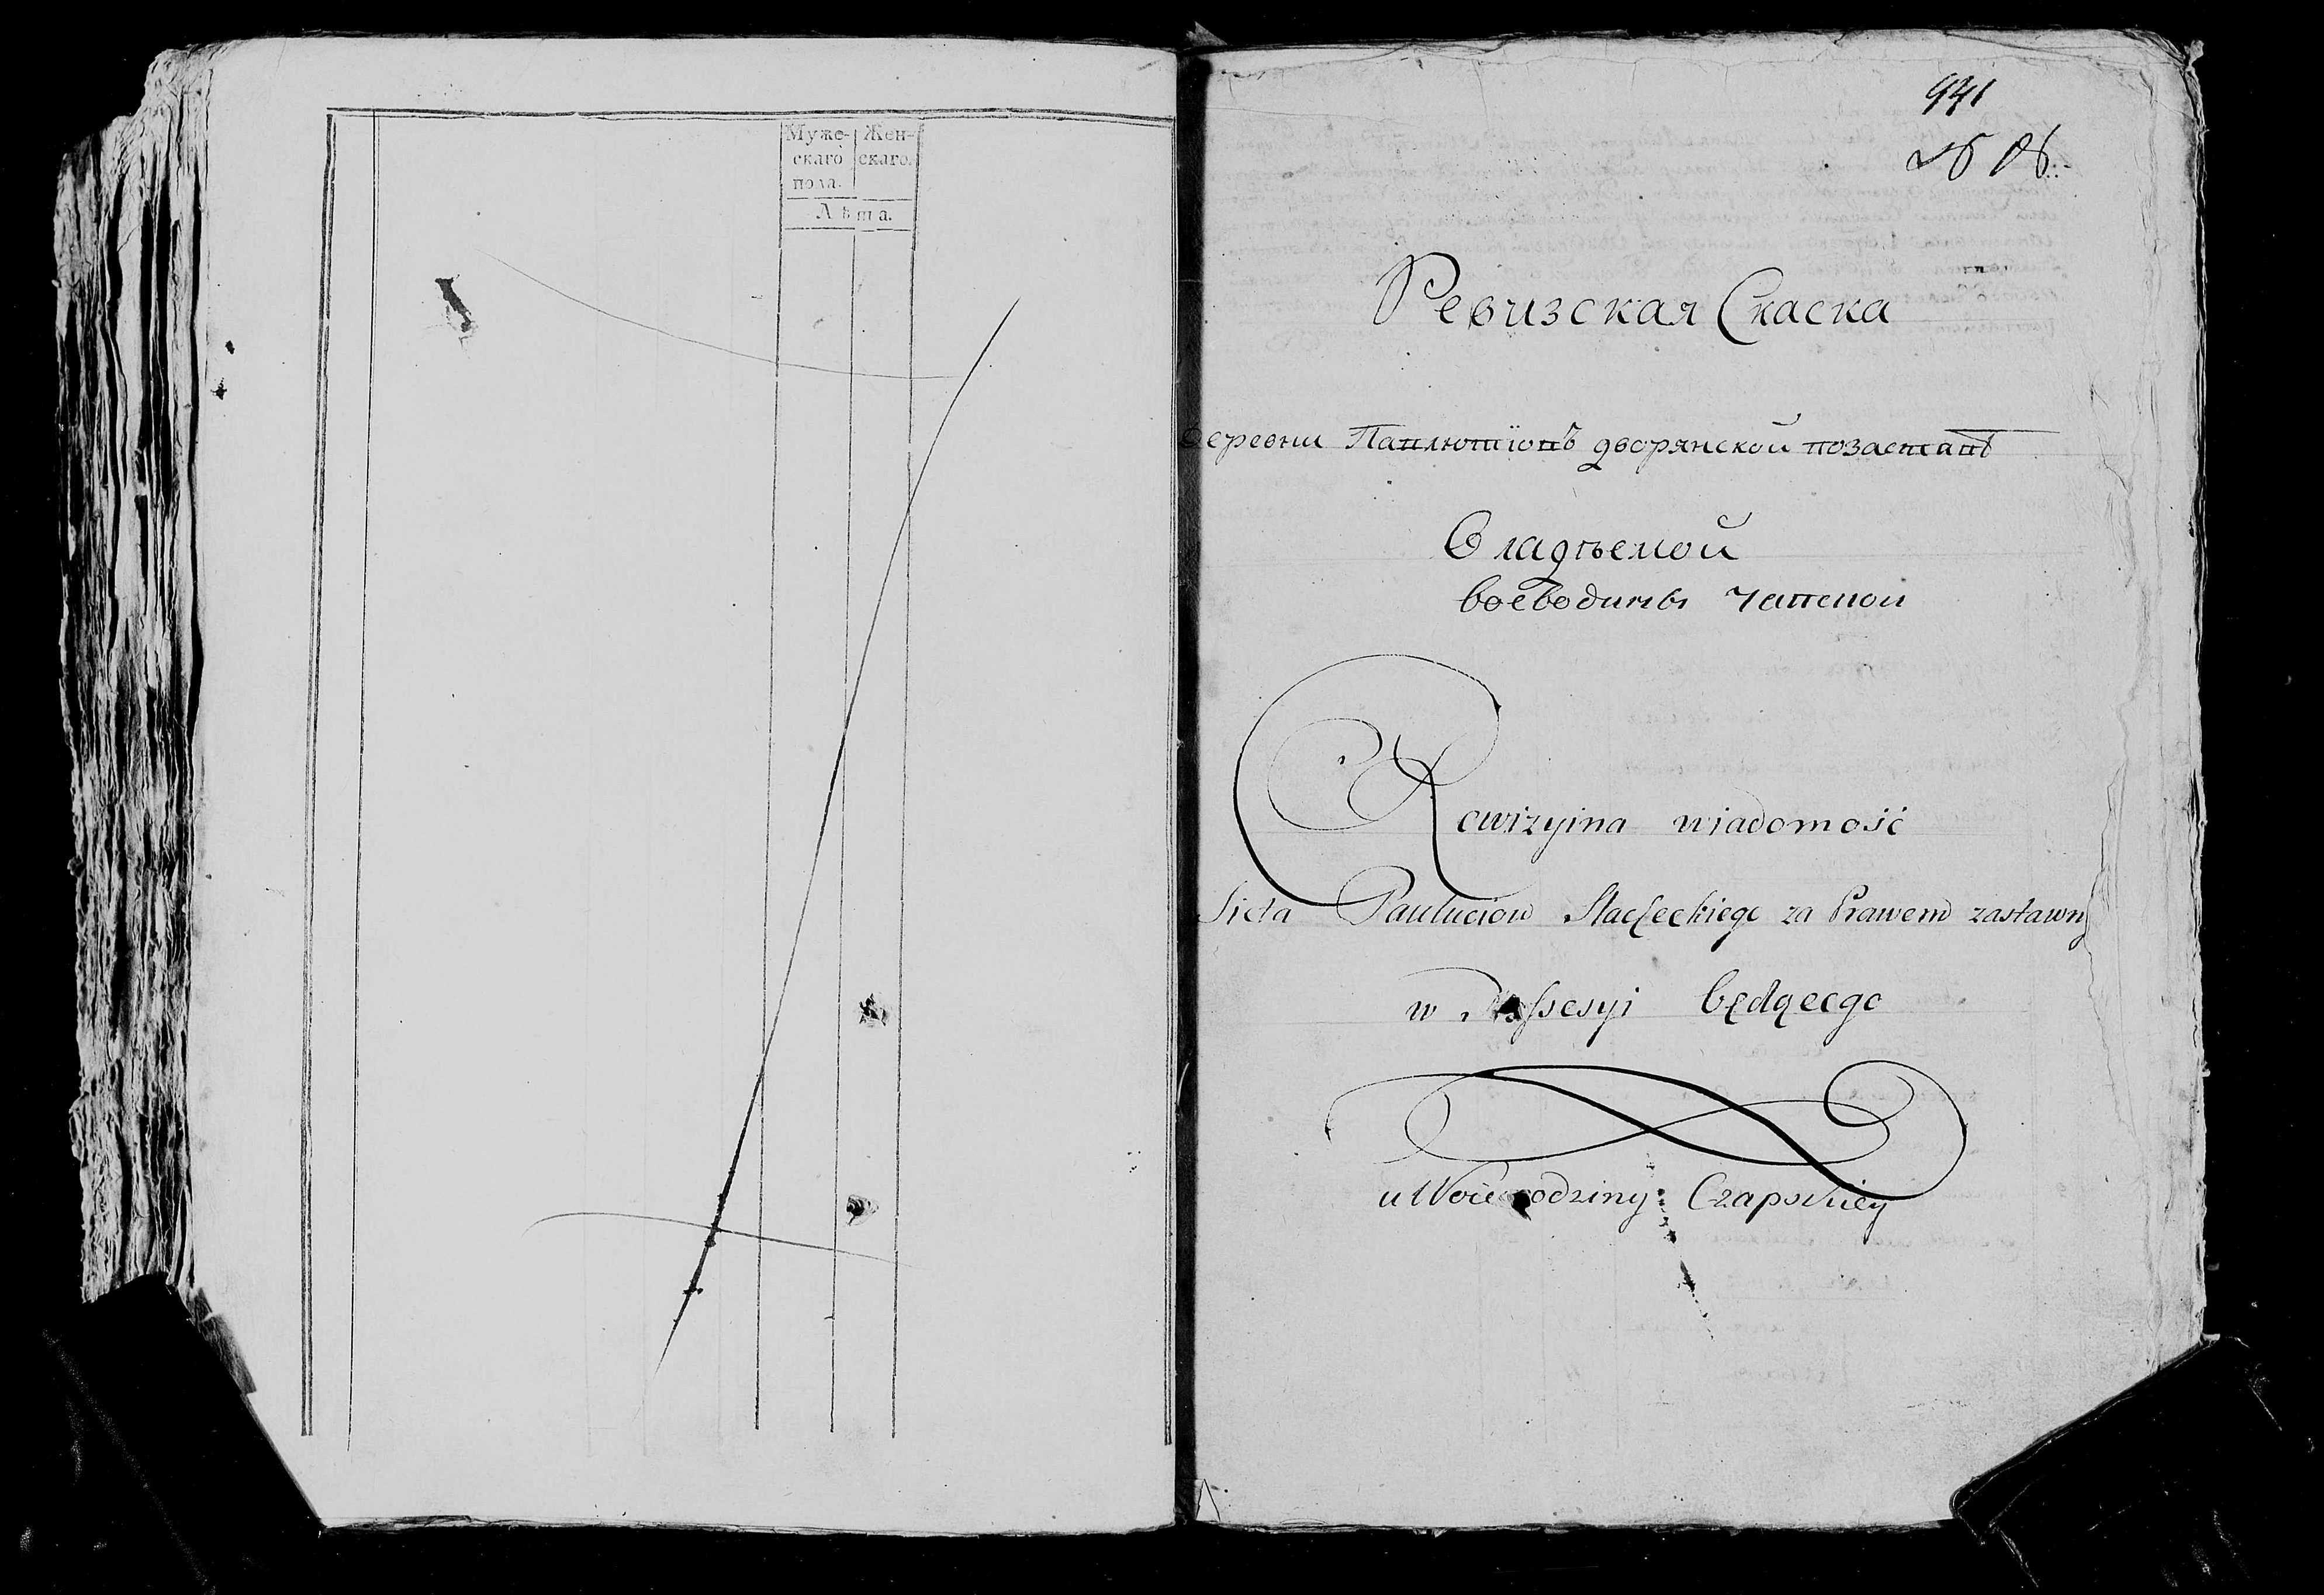 Муже-
скаго
пола.
Жен-
скаго.
Лѣта.
941
Ревизская Скаска
деревни дворянской
Владѣемой
воеводины
Rewizyina wiadomość
Sioła Pauluciow Slacheckiego za Prawem zastawny
w Possesyi będącego
u Woiewodziny Czapskiey